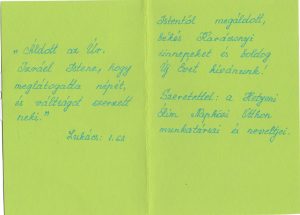 „Áldott az Úr.
Izráel Istene, hogy
meglátogatta népét,
és váltságot szerzett
neki."
Lukács: 1.68
Istentől megáldott,
békés Karácsonyi
ünnepeket és boldog
Új Évet kívánunk.
Szeretettel: a Hetyeni
Élim Napközi Otthon
munkatársai és neveltjei.